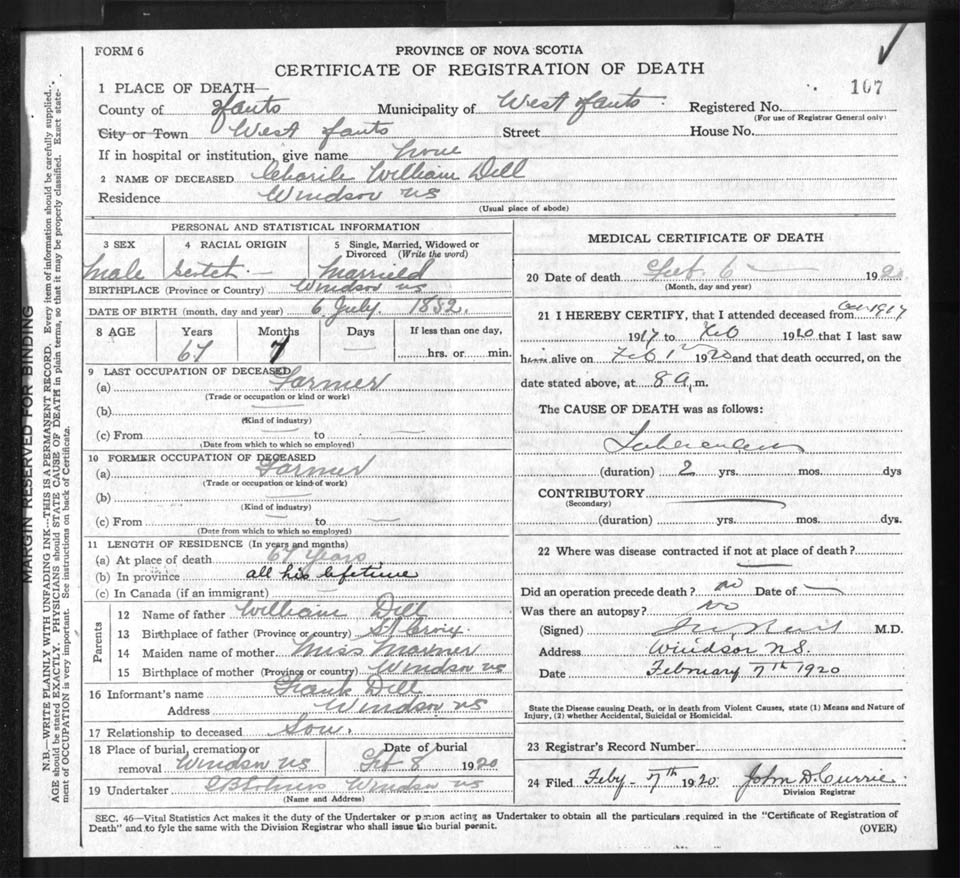 FORM 6
PROVINCE OF NOVA SCOTIA
CERTIFICATE OF REGISTRATION OF DEATH
107
1 PLACE OF DEATH—
County of Hants Municipality of West Hants Registered No.
(For use of Registrar General only)
City or Town West Hants Street House No.
If in hospital or institution, give name None
2 NAME OF DECEASED Charile William Dill
Residence Windsor NS
(Usual place of abode)
PERSONAL AND STATISTICAL INFORMATION
3 SEX 4 RACIAL ORIGIN 5 Single, Married, Widowed or Divorced (Write the word)
Male Scotch Marrield
BIRTHPLACE (Province or Country) Windsor NS
DATE OF BIRTH (month, day and year) 6 July 1852.
8 AGE Years Months Days If less than one day,
67 7 hrs. or min.
9 LAST OCCUPATION OF DECEASED
(a) Farmer
(Trade or occupation or kind or work)
(b)
(Kind of industry)
(c) From to
(Date from which to which so employed)
10 FORMER OCCUPATION OF DECEASED
(a) Farmer
(Trade or occupation or kind of work)
(b)
(Kind of industry)
(c) From to
(Date from which to which so employed)
11 LENGTH OF RESIDENCE (In years and months)
(a) At place of death 67 years
(b) In province all his lifetime
(c) In Canada (if an immigrant)
Parents
12 Name of father William Dill
13 Birthplace of father (Province or country) St Croix
14 Maiden name of mother Miss
15 Birthplace of mother (Province or country) Windsor NS
16 Informant's name Frank Dill
Address Windsor NS
17 Relationship to deceased Son.
18 Place of burial, cremation or removal Windsor NS Date of burial Feb 8 1920
19 Undertaker Windsor NS
(Name and Address)
MEDICAL CERTIFICATE OF DEATH
20 Date of death Feb. 6 1920
(Month, day and year)
21 I HEREBY CERTIFY, that I attended deceased from Oct 1917
1917 to Feb 1920 that I last saw
h alive on Feb 1 1920 and that death occurred, on the
date stated above, at 8 a, m.
The CAUSE OF DEATH was as follows:
Tuberculosis
(duration) 2 yrs. mos. dys
CONTRIBUTORY
(Secondary)
(duration) yrs. mos. dys.
22 Where was disease contracted if not at place of death?
Did an operation precede death? no Date of
Was there an autopsy? no
(Signed) M.D.
Address Windsor N.S.
Date February 7th 1920
State the Disease causing Death, or in death from Violent Causes, state (1) Means and Nature of
Injury, (2) whether Accidental, Suicidal or Homicidal.
23 Registrar's Record Number
24 Filed Feby - 7th 1920 John D. Currie
Division Registrar
SEC. 46—Vital Statistics Act makes it the duty of the Undertaker or person acting as Undertaker to obtain all the particulars required in the "Certificate of Registration of
Death" and to fyle the same with the Division Registrar who shall issue the burial permit. (OVER)
MARGIN RESERVED FOR BINDING
N.B.—WRITE PLAINLY WITH UNFADING INK—THIS IS A PERMANENT RECORD. Every item of information should be carefully supplied.
AGE should be stated EXACTLY. PHYSICIANS should STATE CAUSE OF DEATH in plain terms, so that it may be properly classified. Exact state-
ment of OCCUPATION is very important. See instructions on back of Certificate.